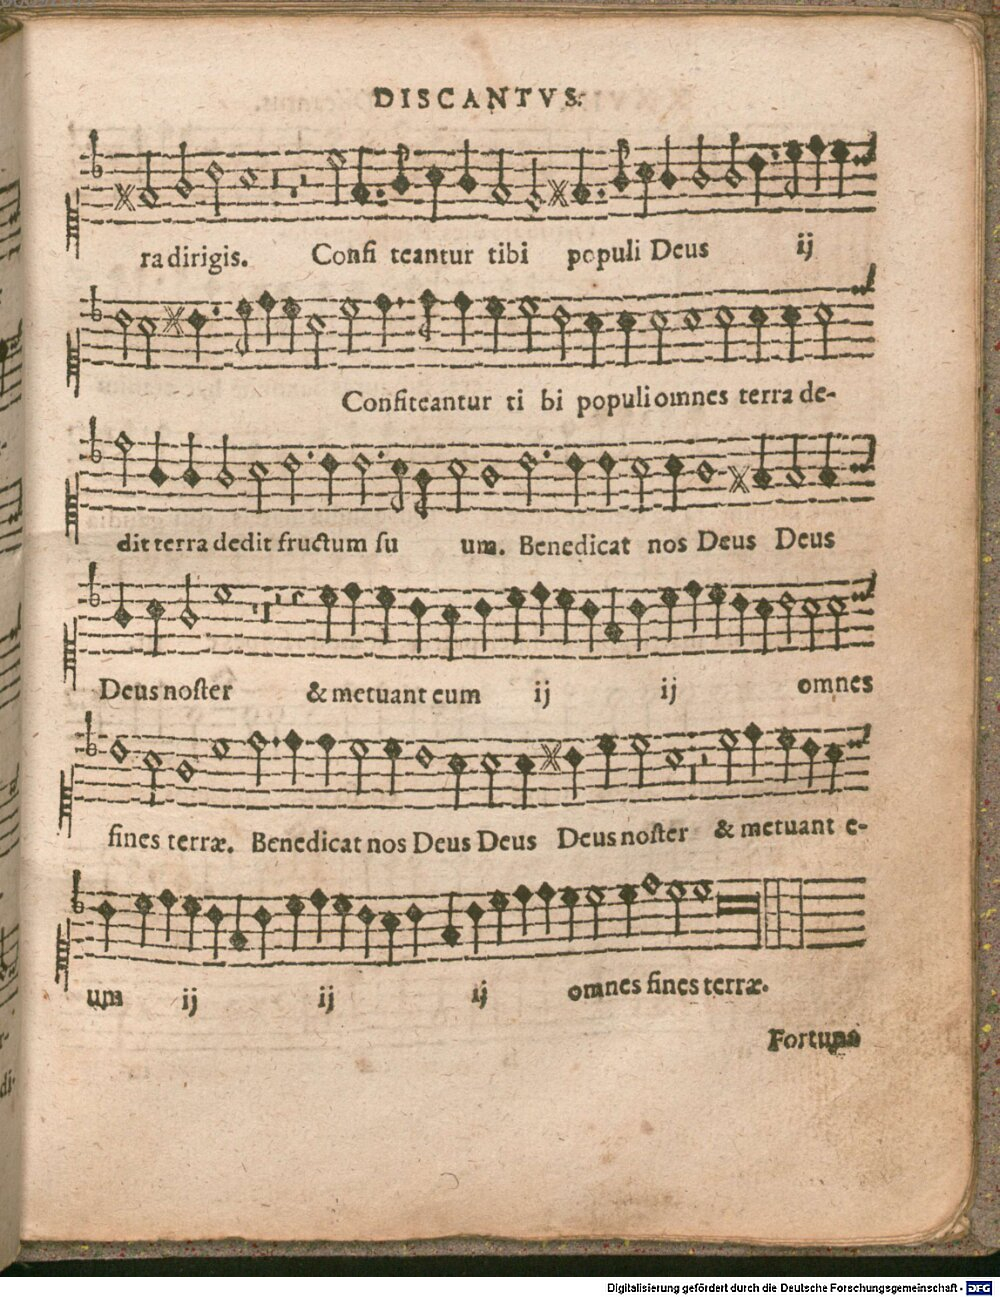 DISCANTVS.
ra dirigis. Confi teantur tibi populi Deus ij
Confiteantur ti bi populi omnes terra de-
dit terra dedit fructum su um. Benedicat nos Deus Deus
Deus noster & metuant eum ij ij omnes
fines terræ. Benedicat nos Deus Deus Deus noster & metuant e-
um ij ij ij omnes fines terræ.
Fortuna
Digitalisierung gefördert durch die Deutsche Forschungsgemeinschaft - DFG